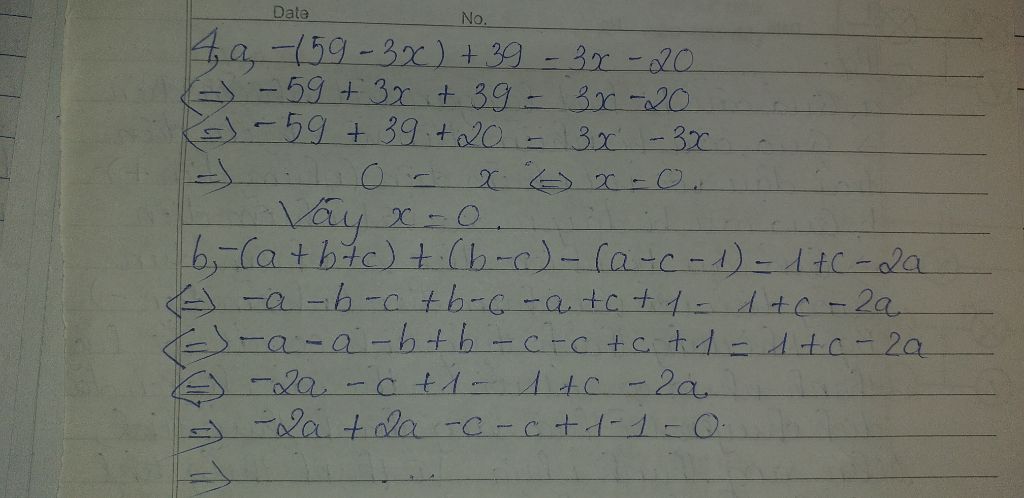 Date No.
4, a, -(59 - 3x) + 39 = 3x - 20
<=> -59 + 3x + 39 = 3x - 20
<=> -59 + 39 + 20 = 3x - 3x
=> 0 = x <=> x = 0.
Vây x = 0.
b, -(a + b + c) + (b - c) - (a - c - 1) = 1 + c - 2a
<=> -a - b - c + b - c - a + c + 1 = 1 + c - 2a
<=> -a - a - b + b - c - c + c + 1 = 1 + c - 2a
<=> -2a - c + 1 = 1 + c - 2a
=> -2a + 2a - c - c + 1 - 1 = 0.
=> ...